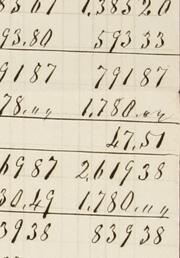 8561 1,38520
93.80 593 33
9187 79187
78.〃〃 1,780.〃〃
47.51
6987 2,61938
30.49 1,780.〃〃
3938 83938